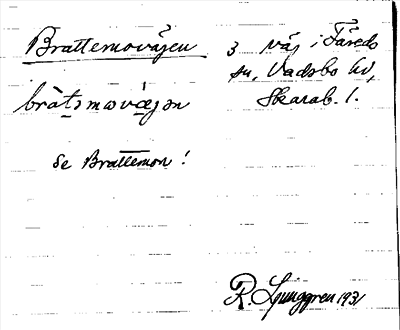 Brattemovägen
bràt:smovæ̀gən
se Brattemon!
3 väg i Färeds
sn, Vadsbo hd,
Skarab. l.
R. Ljunggren 1931